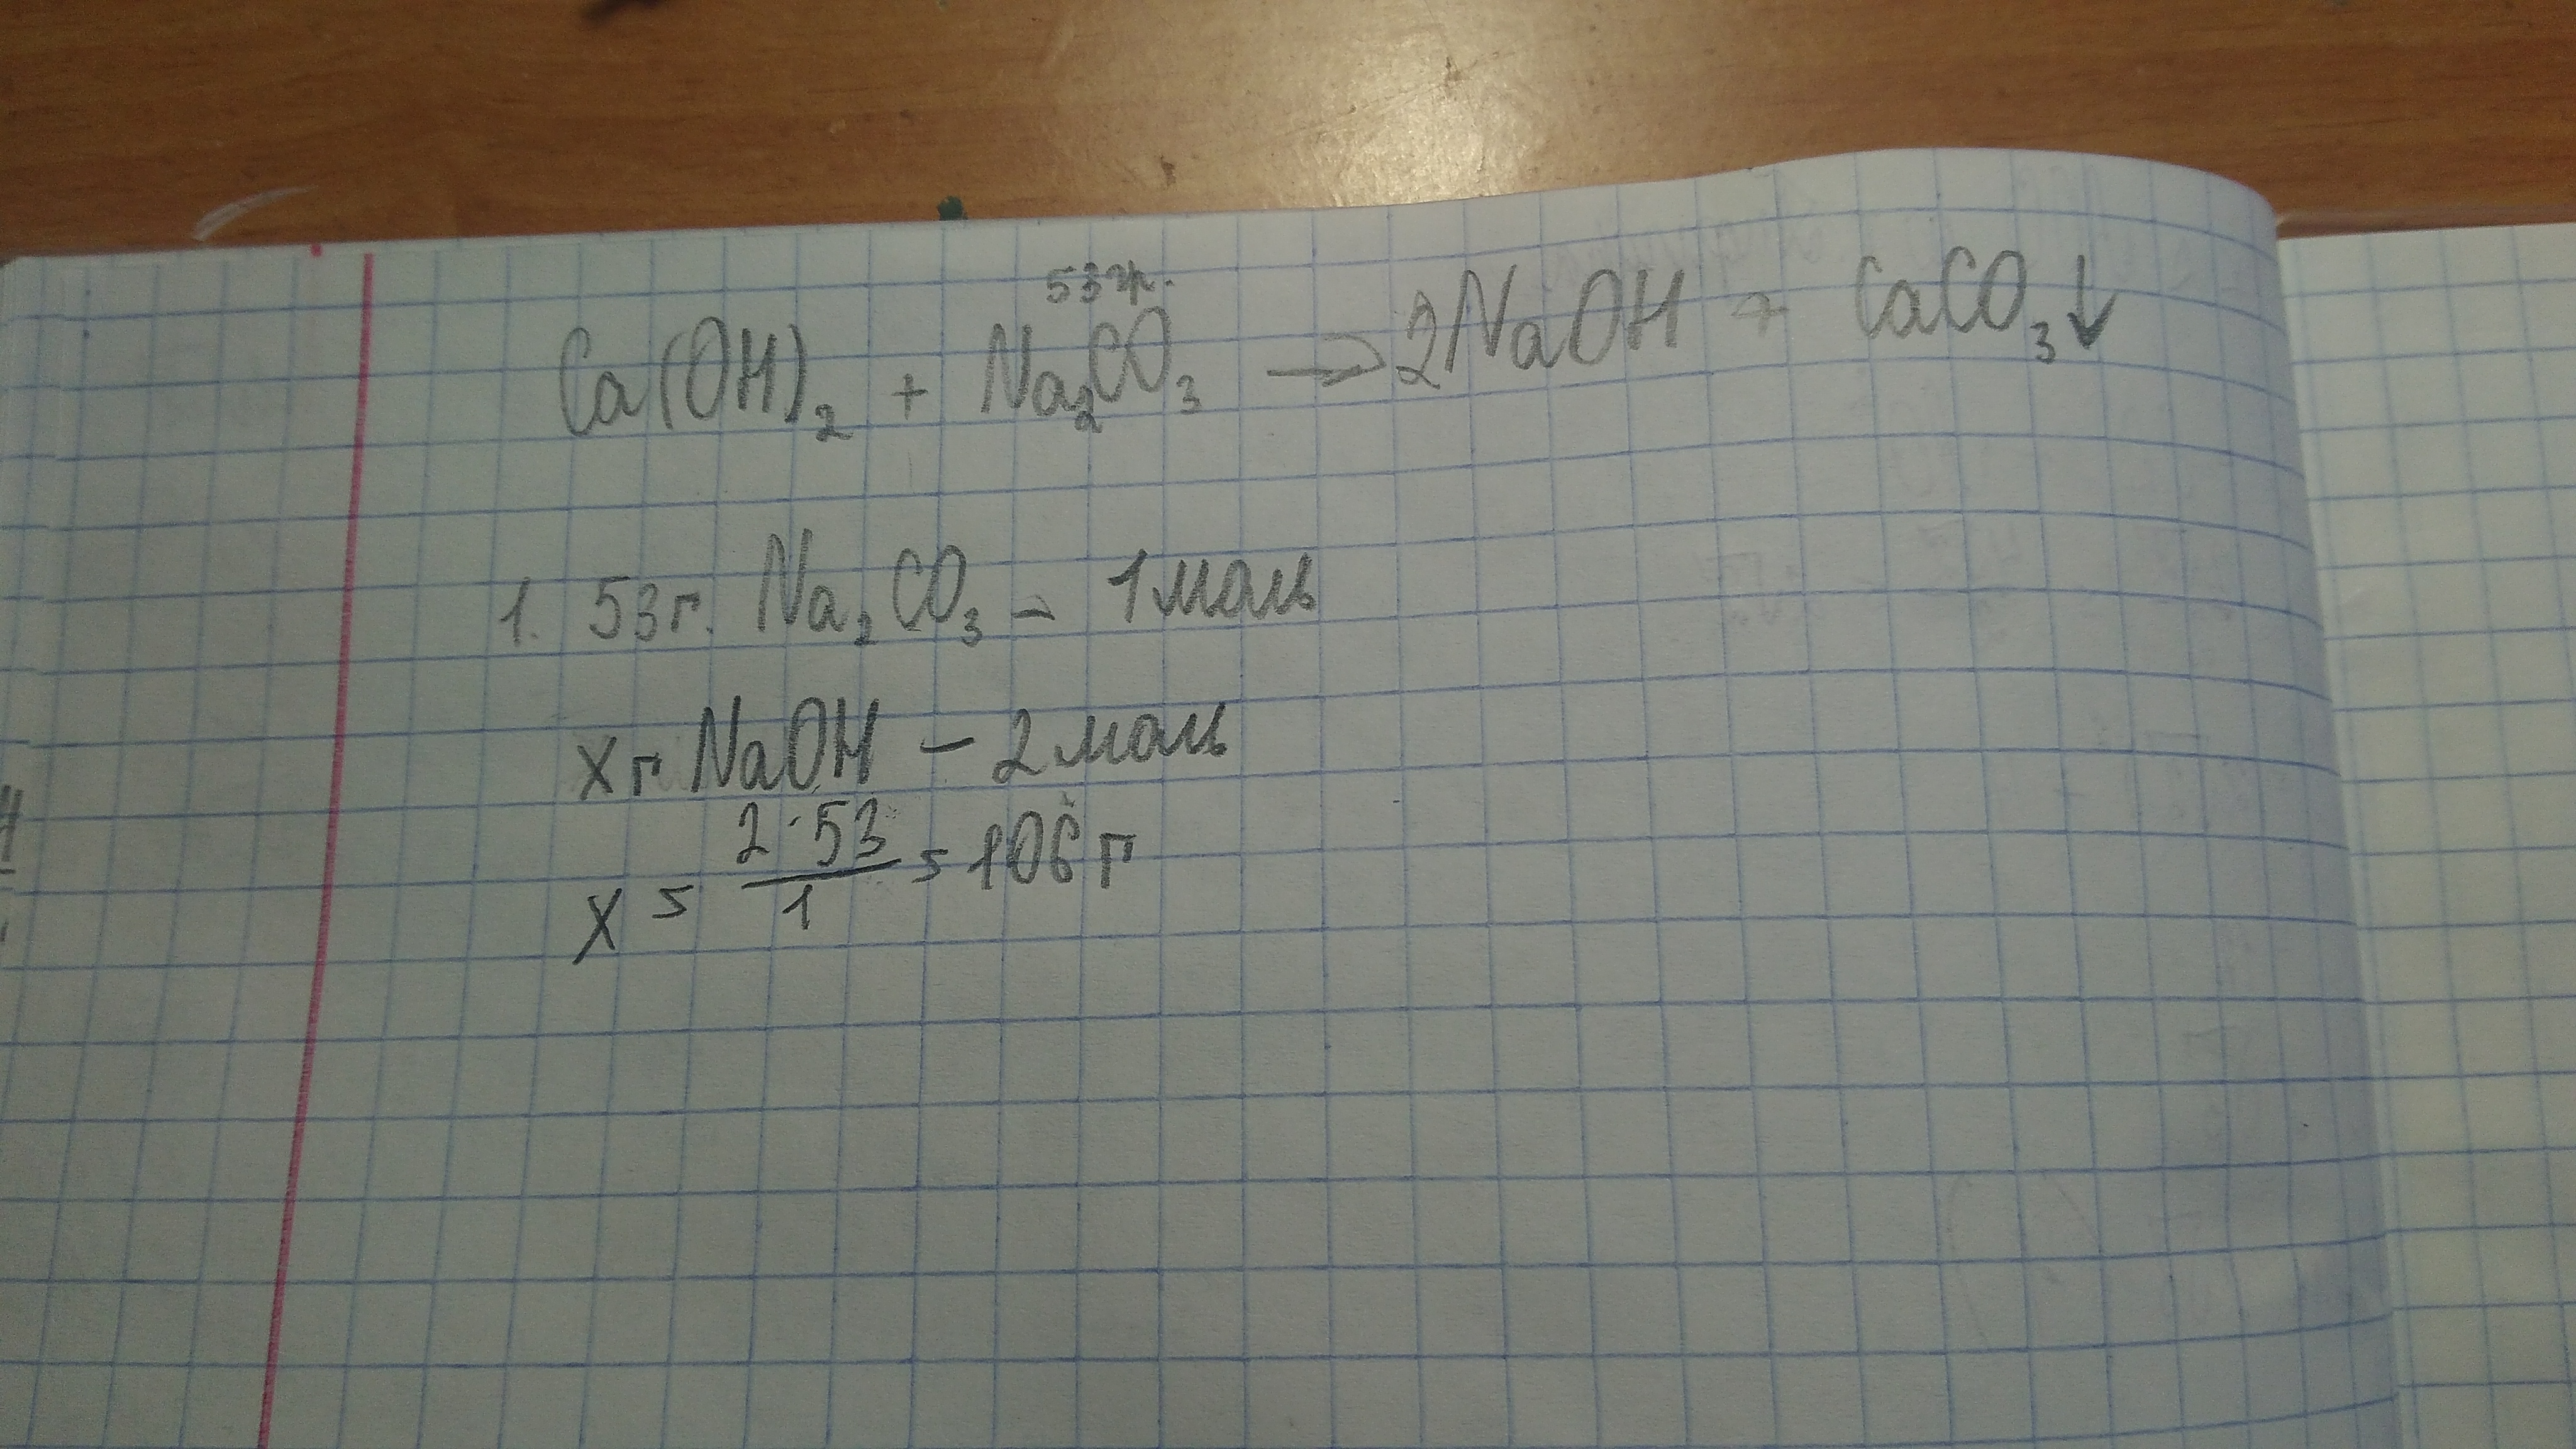 53 гр.
Ca(OH)₂ + Na₂CO₃ → 2NaOH + CaCO₃↓
1. 53г. Na₂CO₃ – 1 моль
x г NaOH – 2 моль
x = 2·53/1 = 106 г